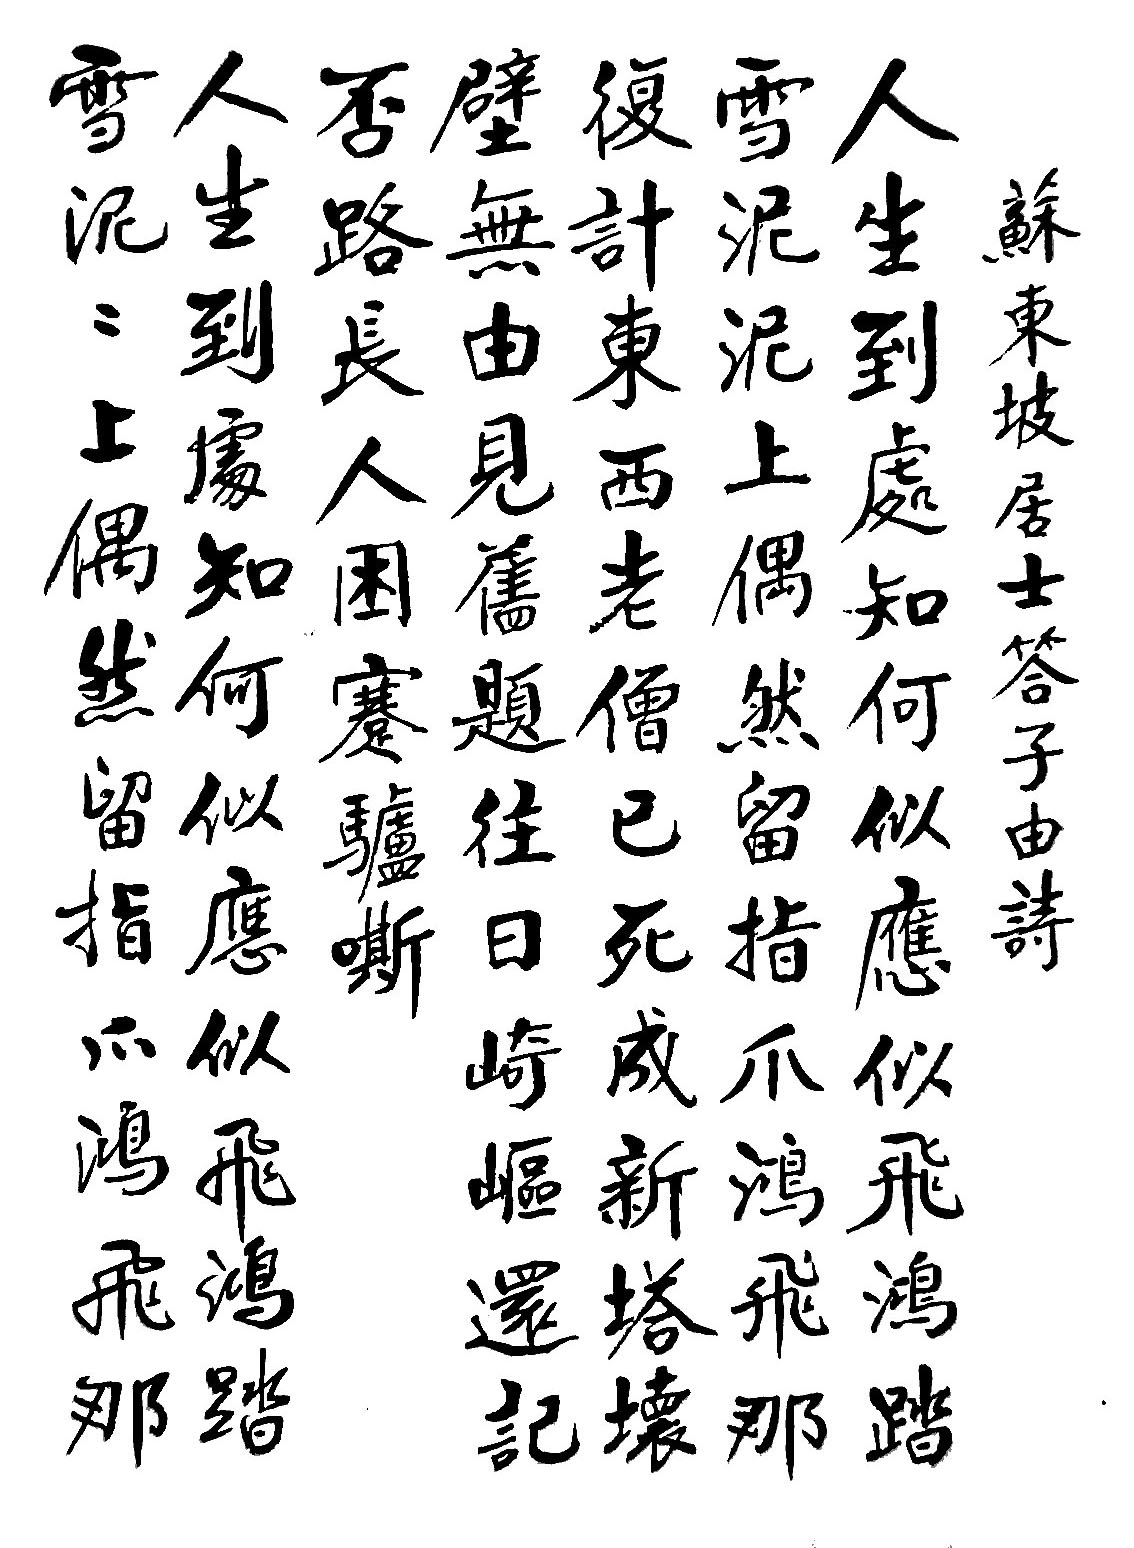 蘇東坡居士答子由詩
人生到處知何似應似飛鴻踏
雪泥泥上偶然留指爪鴻飛那
復計東西老僧已死成新塔壞
壁無由見舊題往日崎嶇還記
否路長人困蹇驢嘶
人生到處知何似應似飛鴻踏
雪泥〻上偶然留指爪鴻飛那